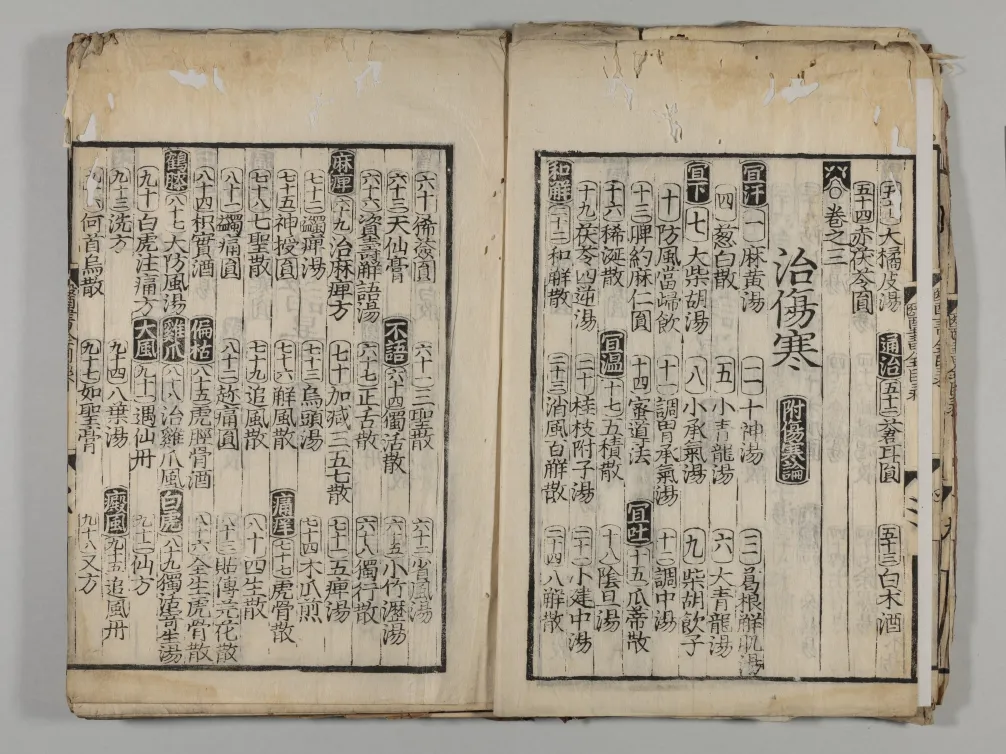 大橘皮湯 通治 五十二蒼耳圓 五十三白术酒
五十四赤茯苓圓
卷之三
治傷寒 附傷寒論
宜汗 一 麻黄湯 二 十神湯 三 葛根解肌湯
四 葱白散 五 小青龍湯 六 大青龍湯
宜下 七 大柴胡湯 八 小承氣湯 九 柴胡飲子
十 防風當歸飲 十一 調胃承氣湯 十二 調中湯
十三脾約麻仁圓 十四 法 宜吐 十五瓜蒂散
十六稀涎散 宜温 十七五積散 十八 陰旦湯
十九茯苓四逆湯 二十桂枝附子湯 二十一小建中湯
和解 二十二和解散 二十三消風百解散 二十四八解散
六十豨薟圓 六十一三聖散 六十二省風湯
六十三天仙膏 不語 六十四獨活散 六十五小竹瀝湯
六十六資壽解語湯 六十七正舌散 六十八獨行散
麻痺 六十九治麻痺方 七十加减三五七散 七十一五痺湯
七十二蠲痺湯 七十三烏頭湯 七十四木瓜煎
七十五神授圓 七十六解風散 痛痒 七十七虎骨散
七十八七聖散 七十九追風散 八十四生散
八十一蠲痛圓 八十二趂痛圓 八十三貼傅芫花散
八十四枳實酒 偏枯 八十五虎脛骨酒 八十六全生虎骨散
鶴膝 八十七大防風湯 雞爪 八十八治雞爪風 白虎 八十九獨活寄生湯
九十白虎注痛方 大風 九十一遇仙丹 九十二仙方
九十三洗方 九十四八湯 癜風 九十五追風丹
何首烏散 九十七如聖膏 九十八又方